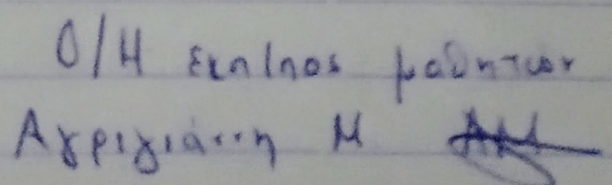 Ο/Η εκπ/πος μαθητών
Αγριγιάννη Μ